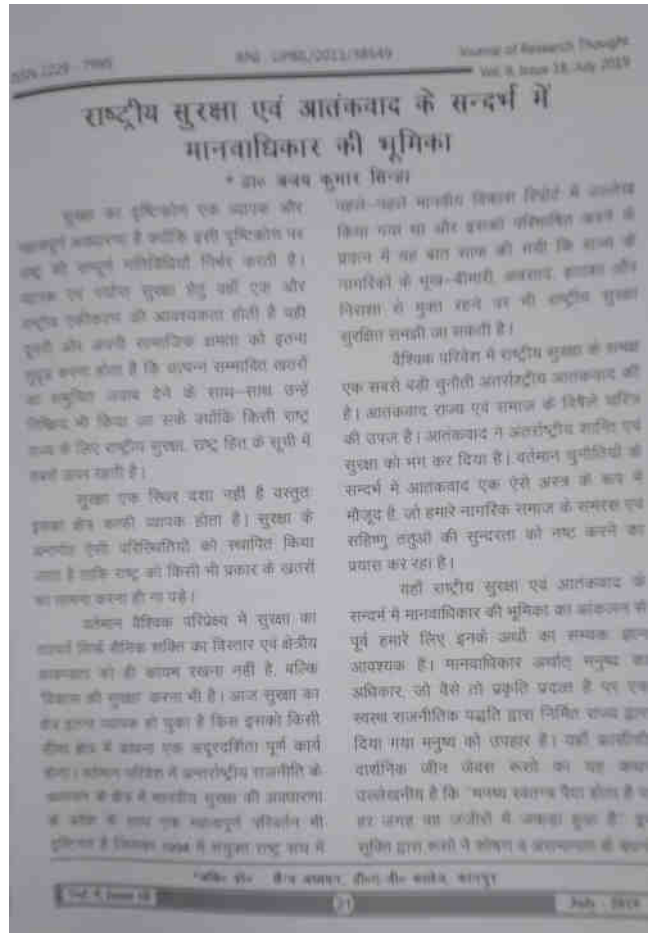 ISSN 2229 - 7995
RNI : UPBIL/2011/38549
Journal of Research Thought
Vol. 9, Issue 18, July 2019
राष्ट्रीय सुरक्षा एवं आतंकवाद के सन्दर्भ में
मानवाधिकार की भूमिका
* डा० कुमार सिन्हा
सुरक्षा का दृष्टिकोण एक व्यापक और
महत्वपूर्ण अवधारणा है क्योंकि इसी दृष्टिकोण पर
राष्ट्र की सम्पूर्ण गतिविधियाँ निर्भर करती है।
व्यापक एवं पर्याप्त सुरक्षा हेतु जहाँ एक ओर
राष्ट्रीय एकीकरण की आवश्यकता होती है वहीं
दूसरी ओर अपनी सामाजिक क्षमता को इतना
सुदृढ़ करना होता है कि उत्पन्न सम्भावित खतरों
का समुचित जवाब देने के साथ-साथ उन्हें
निष्क्रिय भी किया जा सके क्योंकि किसी राष्ट्र
राज्य के लिए राष्ट्रीय सुरक्षा, राष्ट्र हित के सूची में
सबसे ऊपर रहती है।
सुरक्षा एक स्थिर दशा नहीं है वस्तुतः
इसका क्षेत्र काफी व्यापक होता है। सुरक्षा के
अन्तर्गत ऐसी परिस्थितियों को स्थापित किया
जाता है ताकि राष्ट्र को किसी भी प्रकार के खतरों
का सामना करना ही ना पड़े।
वर्तमान वैश्विक परिप्रेक्ष्य में सुरक्षा का
तात्पर्य सिर्फ सैनिक शक्ति का विस्तार एवं क्षेत्रीय
अखण्डता को ही कायम रखना नहीं है, बल्कि
विकास की सुरक्षा करना भी है। आज सुरक्षा का
क्षेत्र इतना व्यापक हो चुका है किस इसको किसी
सीमा क्षेत्र में बांधना एक अदूरदर्शिता पूर्ण कार्य
होगा। वर्तमान परिवेश में अन्तर्राष्ट्रीय राजनीति के
अध्ययन के क्षेत्र में मानवीय सुरक्षा की अवधारणा
के प्रवेश के साथ एक महत्वपूर्ण परिवर्तन भी
दृष्टिगत है जिसका 1994 में संयुक्त राष्ट्र संघ में
पहले-पहले मानवीय विकास रिपोर्ट में उल्लेख
किया गया था और इसको परिभाषित करने के
प्रयास में यह बात साफ की गयी कि राज्य के
नागरिकों के भूख-बीमारी, अवसाद, हताशा और
निराशा से मुक्त रहने पर भी राष्ट्रीय सुरक्षा
सुरक्षित समझी जा सकती है।
वैश्विक परिवेश में राष्ट्रीय सुरक्षा के समक्ष
एक सबसे बड़ी चुनौती अंतर्राष्ट्रीय आतंकवाद की
है। आतंकवाद राज्य एवं समाज के विषैले चरित्र
की उपज है। आतंकवाद ने अंतर्राष्ट्रीय शान्ति एवं
सुरक्षा को भंग कर दिया है। वर्तमान चुनौतियों के
सन्दर्भ में आतंकवाद एक ऐसे अस्त्र के रूप में
मौजूद है, जो हमारे नागरिक समाज के समरस एवं
सहिष्णु तंतुओं की सुन्दरता को नष्ट करने का
प्रयास कर रहा है।
यहाँ राष्ट्रीय सुरक्षा एवं आतंकवाद के
सन्दर्भ में मानवाधिकार की भूमिका का आंकलन से
पूर्व हमारे लिए इनके अर्थो का सम्यक ज्ञान
आवश्यक है। मानवाधिकार अर्थात् मनुष्य का
अधिकार, जो वैसे तो प्रकृति प्रदत्त है पर एक
स्वस्थ राजनीतिक पद्धति द्वारा निर्मित राज्य द्वारा
दिया गया मनुष्य को उपहार है। यहाँ फ्रांसीसी
दार्शनिक जीन जेक्स रूसो का यह कथन
उल्लेखनीय है कि "मनुष्य स्वतन्त्र पैदा होता है प
हर जगह वह जंजीरों में जकड़ा हुआ है" इ
सूक्ति द्वारा रूसो ने शोषण व असमानता के
सैन्य अध्ययन, डी०ए०वी० कालेज, कानपुर
Vol. 9, Issue 18
21
July - 2019